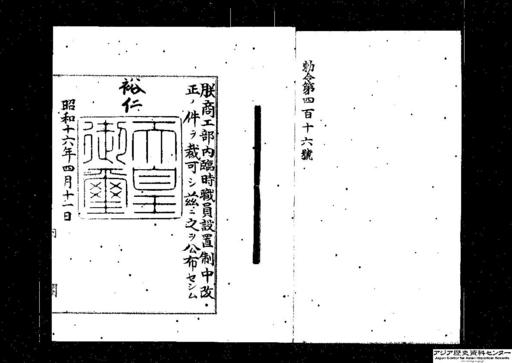 勅令第四百十六號
朕商工部内臨時職員設置制中改
正ノ件ヲ裁可シ茲ニ之ヲ公布セシム
裕仁
天皇御璽
昭和十六年四月十一日
アジア歴史資料センター
Japan Center for Asian Historical Records